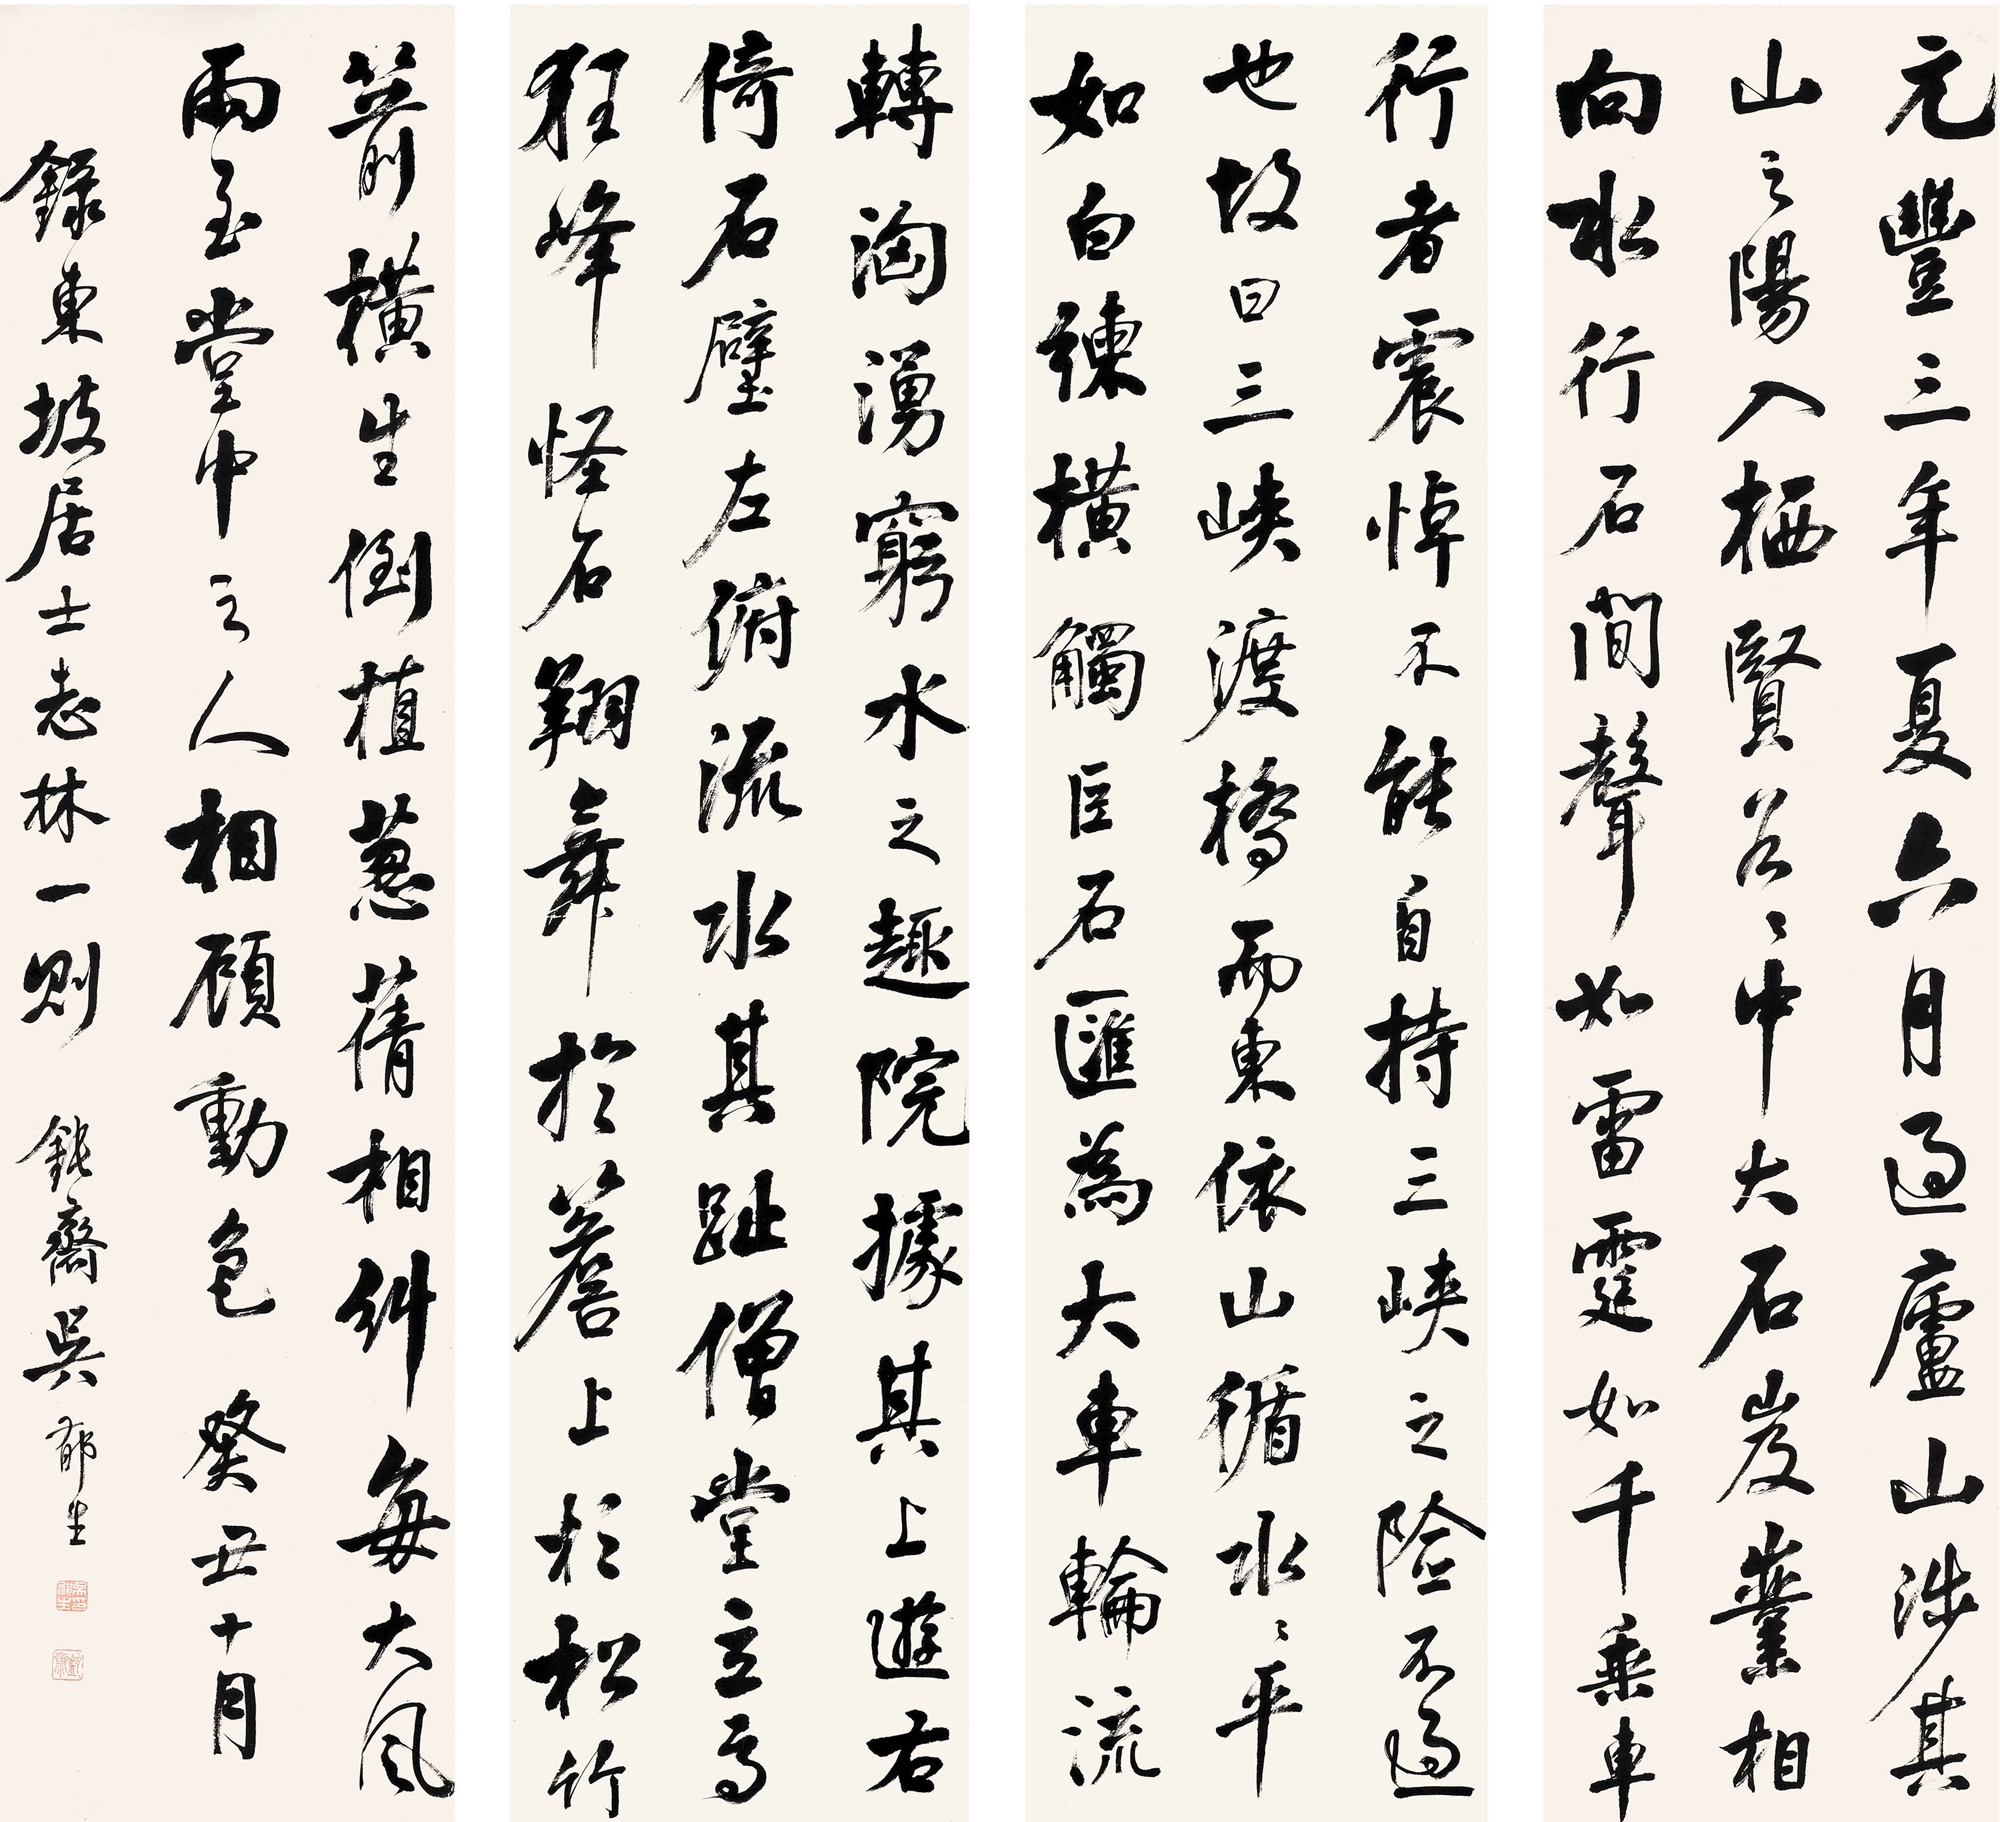 元豐三年夏六月過廬山涉其
山之陽入栖賢谷谷中大石岌嶪相
向水行石間聲如雷霆如千乘車
行者震悼不能自持三峽之險不過
也故曰三峽渡橋而東依山循水水平
如白練橫觸巨石匯為大車輪流
轉洶湧窮水之趣院據其上游右
倚石壁左俯流水其趾僧堂立焉
狂峰怪石翔舞於簷上於松竹
箭橫生倒植葱蒨相糾每大風
雨至堂中之人相顧動色 癸丑十月
錄東坡居士志林一則 鈍齋吳郁生